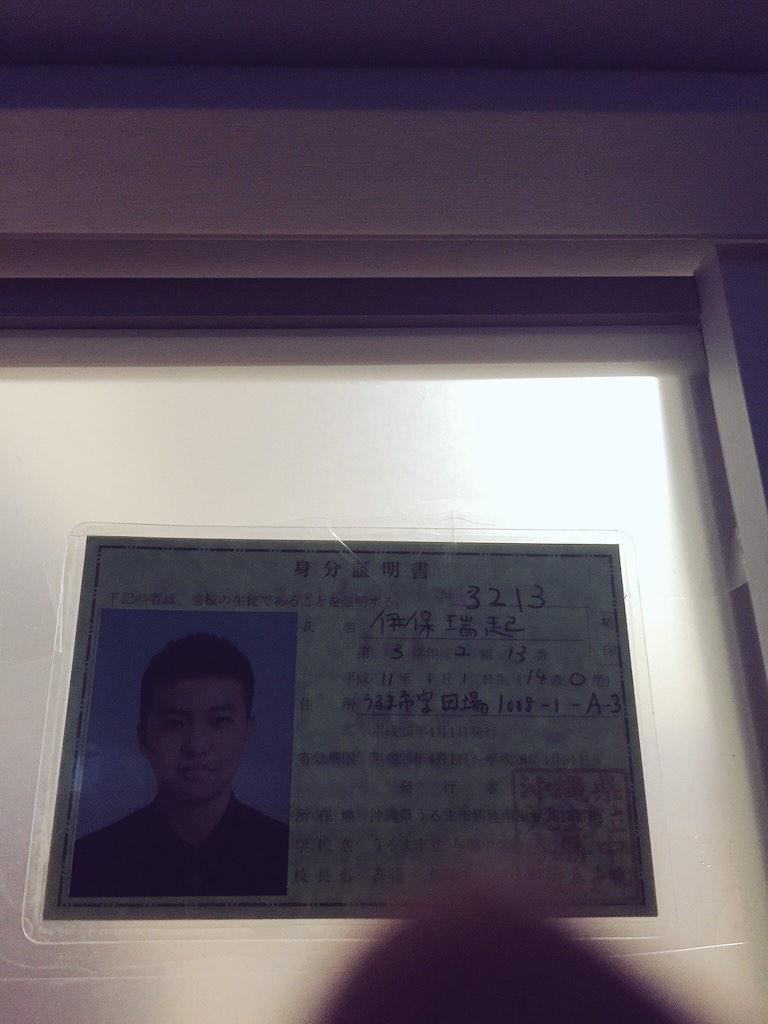 身分証明書
下記の者は、当校の生徒であることを証明する。
№ 3213
氏名 伊保瑞起
契印
第3学年2組13番
平成11年1月1日生(14歳0
住所 うるま市字田場1008-1-A-3
平成25年4月1日発行
有効期限 平成25年4月1日〜平成26年3月31日
発行者
所在地 沖縄県うるま市
学校名 うるま市立
校長名
沖縄県
立
中